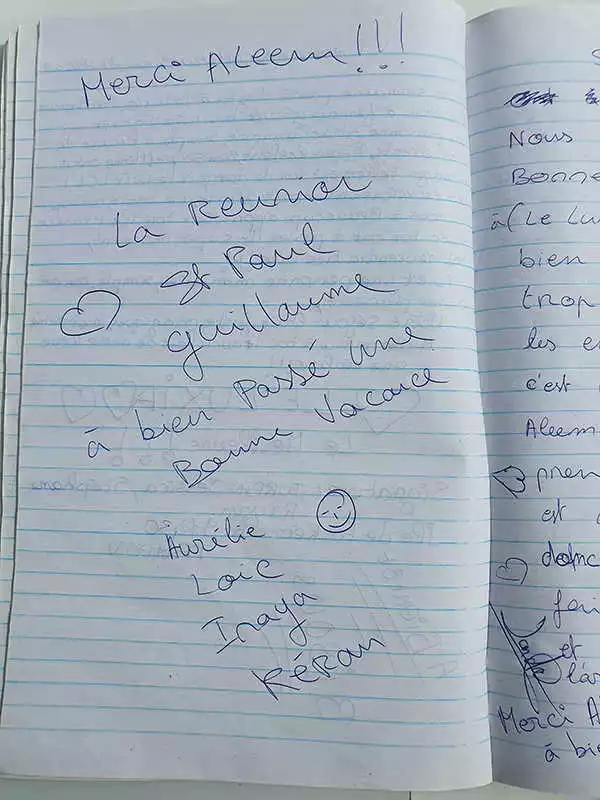 Merci Aleem!!!
La Reunion
St Paul
guillaume
à bien Passé une
Bonne Vacance
Aurélie
Loic
Inaya
Kéran
Nous
Bonne
à (Le Lu
bien
trop
les e
c'est
Aleem
pren
est
donc
fai
et
Merci A
à bie